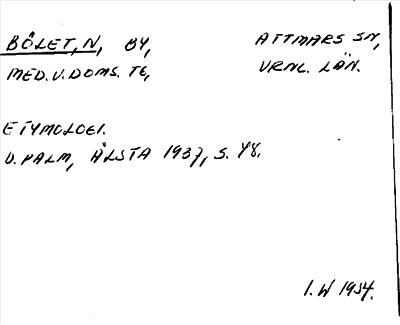 BÖLET, N, BY, ATTMARS SN,
MED. V. DOMS. TG, VRNL. LÄN.
ETYMOLOGI.
V. PALM, ÄLSTA 1937, S. 48.
I. W 1954.